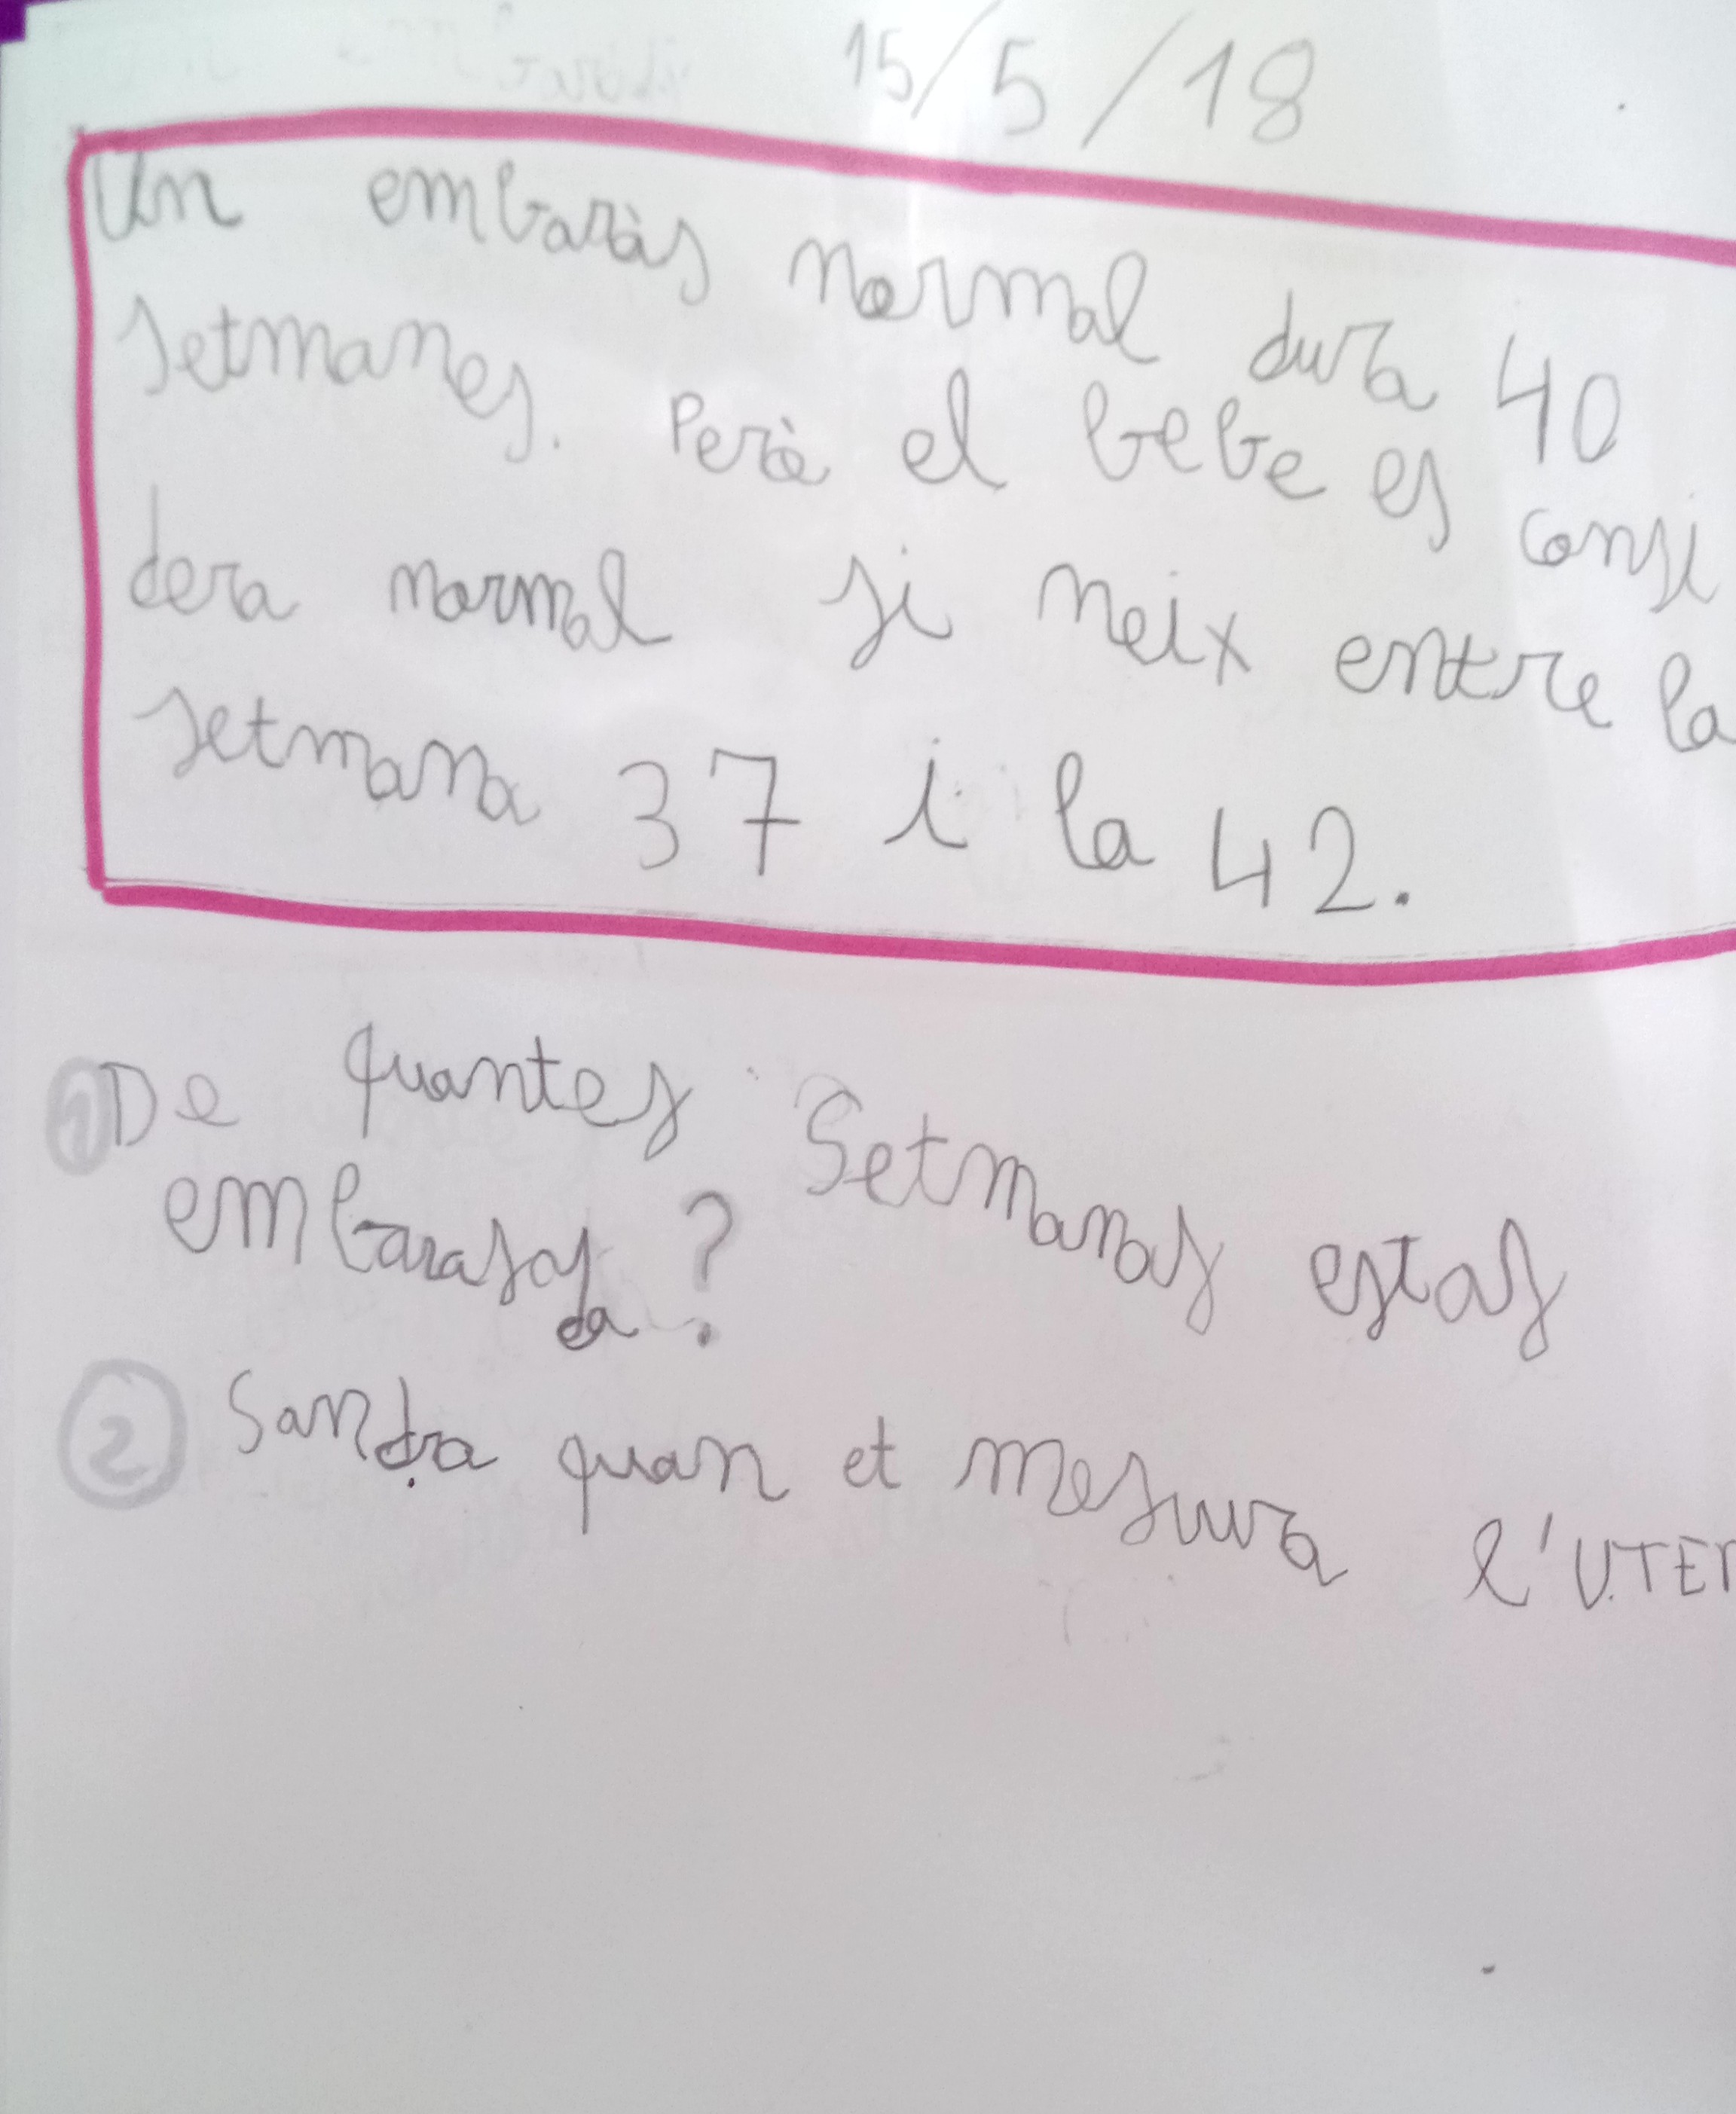 15/5/18
Un embaràs normal dura 40
setmanes. Però el bebe es consi
dera normal si neix entre la
setmana 37 i la 42.
1 De quantes Setmanas estas
embarasada?
2 Sandra quan et mesura l'UTER